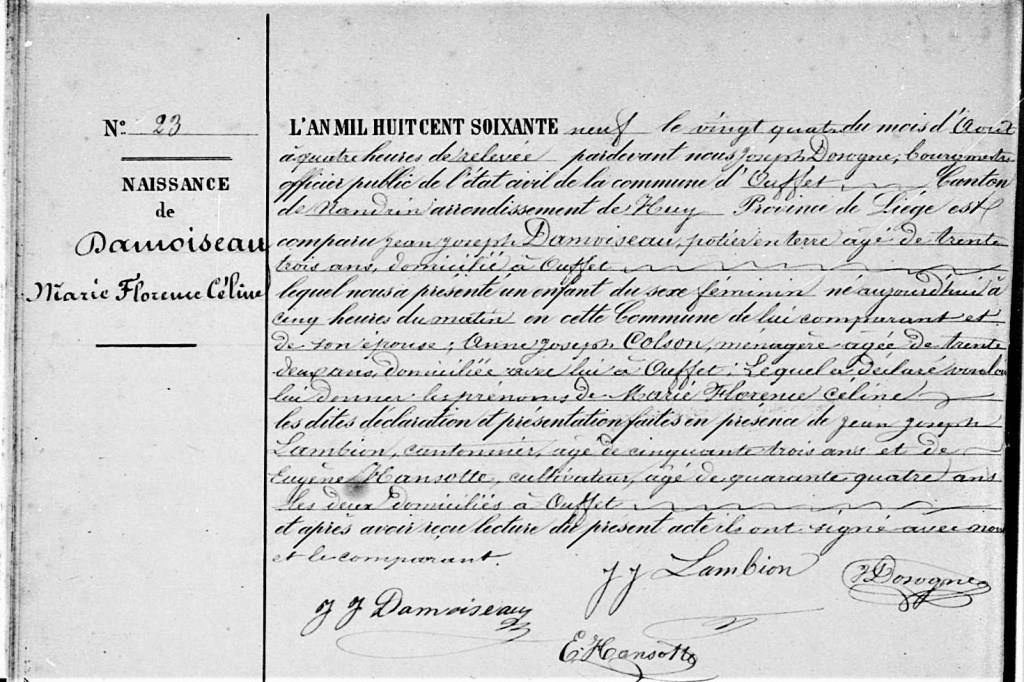 N° 23
NAISSANCE
de
Damoiseau
Marie Florence Céline
L'AN MIL HUIT CENT SOIXANTE neuf le vingt quatre du mois d'Août
à quatre heures de relevée pardevant nous Joseph Dosogne, Bourgmestre
officier public de l'état civil de la commune d'Ouffet Canton
de Nandrin arrondissement de Huy Province de Liège est
comparu Jean Joseph Damoiseau, potier en terre âgé de trente
trois ans, domicilié à Ouffet
lequel nous a présenté un enfant du sexe féminin né aujourd'hui à
cinq heures du matin en cette Commune de lui comparant et
de son épouse; Anne Joseph Colson, ménagère âgée de trente
deux ans, domiciliée avec lui à Ouffet; Lequel a déclaré vouloir
lui donner les prénoms de Marie Florence Céline
les dites déclaration et présentation faites en présence de Jean Joseph
Lambion, cantonnier, âgé de cinquante trois ans et de
Eugène Hansotte, cultivateur, âgé de quarante quatre ans
les deux domiciliés à Ouffet
et après avoir reçu lecture du présent acte ils ont signé avec nous
et le comparant.
J J Lambion
J Dosogne
J J Damoiseau
E. Hansotte